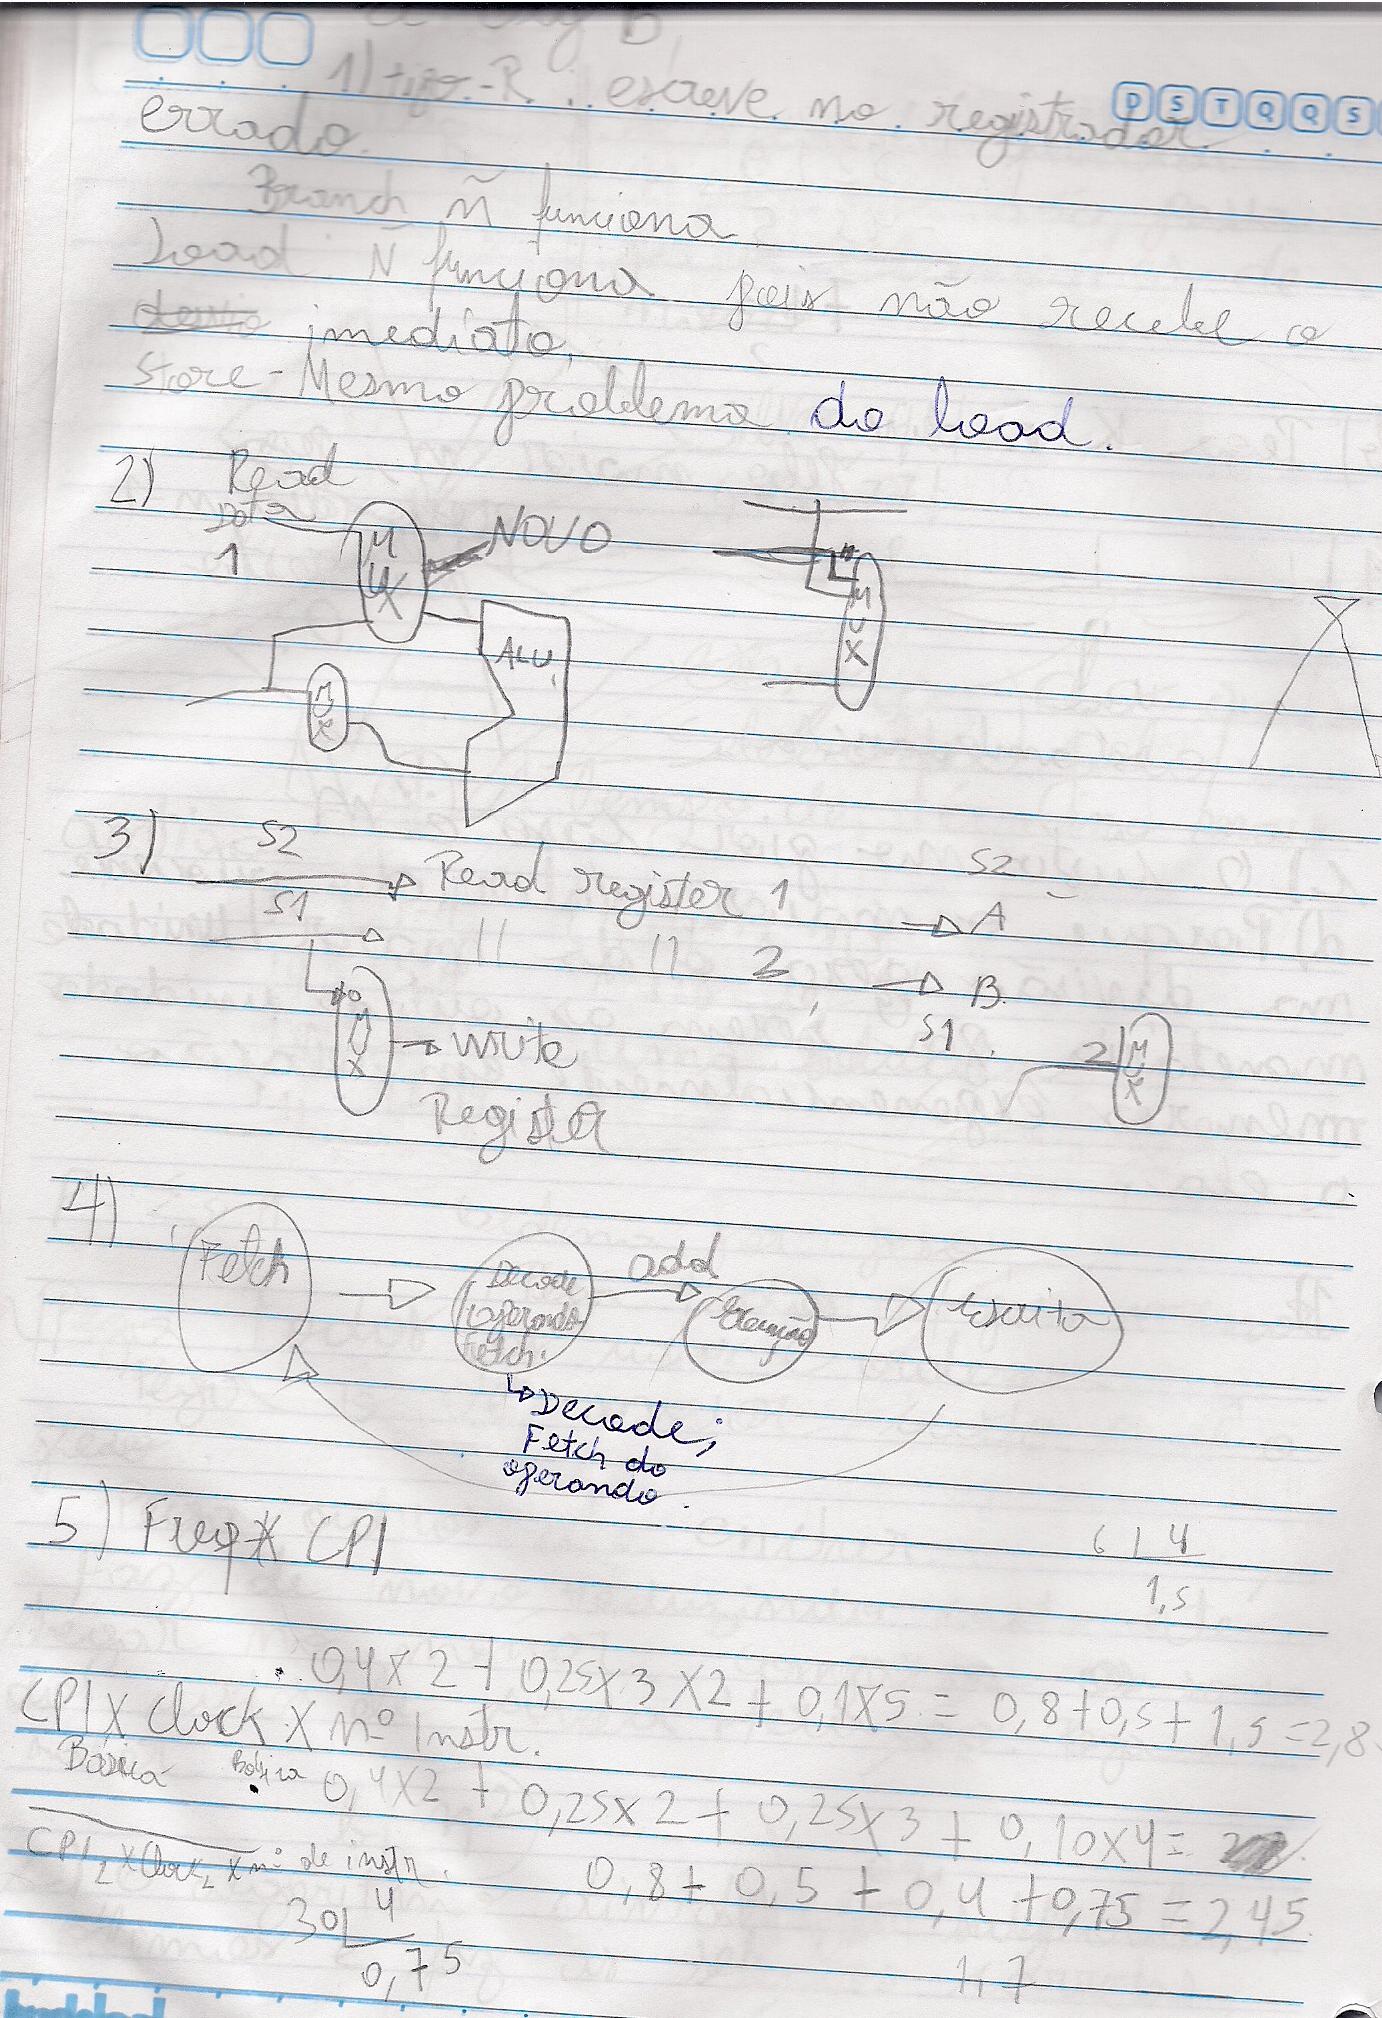 D S T Q Q S
1) tipo-R. escreve no registrador
errado.
Branch ñ funciona
Load ñ funciona pois não recebe o
imediato.
Store - Mesmo problema do load.
2) Read
Data
1
MUX
NOVO
MUX
ALU
MUX
3) S2
Read register 1
S2
A
S1
" " 2
B
S1
0
MUX
write
Register
2 MUX
4)
Fetch
Decode
operando
Fetch.
add
Execução
Escrita
Decode;
Fetch do
operando.
5) Freq X CPI
6 4
1,5
0,4 x 2 + 0,25 x 3 x 2 + 0,1 x 5 = 0,8 + 0,5 + 1,5 = 2,8
CPI x Clock x nº Instr.
Básica Básica
0,4 x 2 + 0,25 x 2 + 0,25 x 3 + 0,10 x 4 =
CPI2 x Clock2 x nº de instr.
0,8 + 0,5 + 0,4 + 0,75 = 2,45
30 4
0,75
1,7